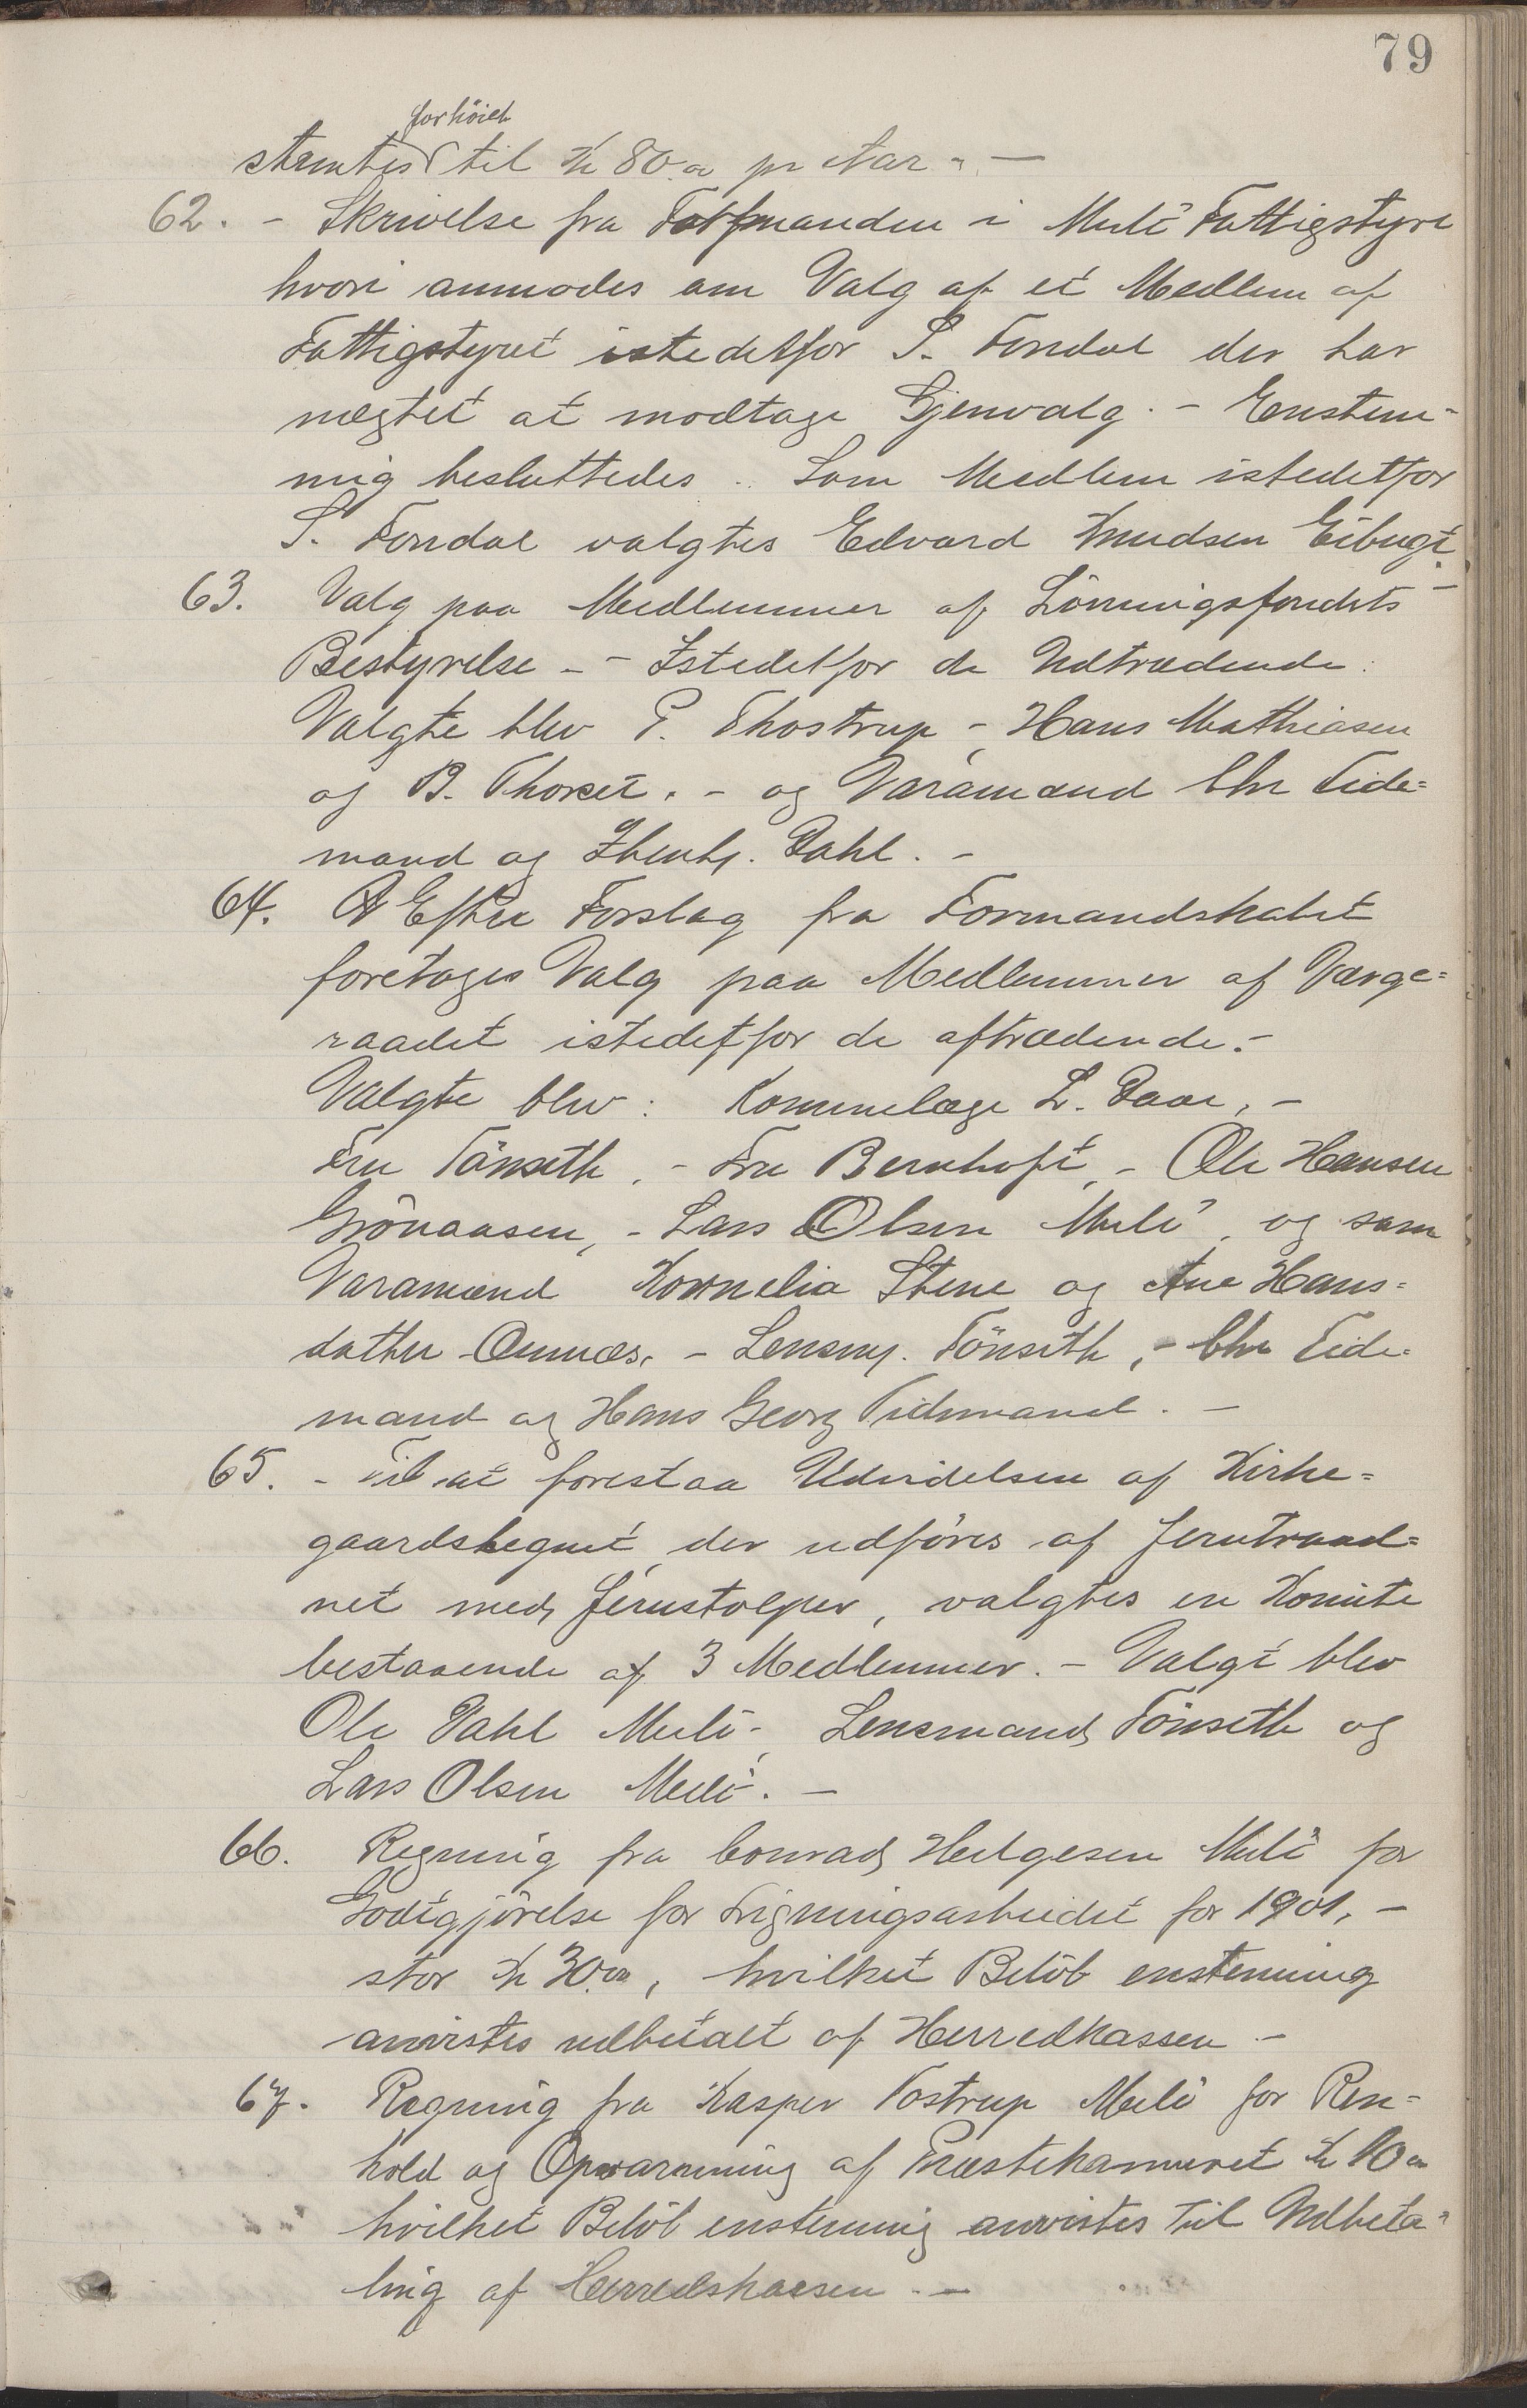 79
forhöiet
stemtes til Kr 80.00 pr Aar. —
62. - Skrivelse fra Formanden i Melö Fattigstyre
hvori anmodes om Valg af et Medlem af
Fattigstyret istedetfor S. Fondal der har
nægtet at modtage Gjenvalg. - Enstem-
mig besluttedes .. Som Medlem istedetfor
S. Fondal valgtes Edvard Knudsen Eibugt. -
63. Valg paa Medlemmer af Lönningsfondets
Bestyrelse - - Istedetfor de Udtrædende.
Valgte blev P. Thostrup - Hans Mathiasen
og B. Thorset. - og Varamænd Chr Tide=
mand og Dahl. -
64. Efter Forslag fra Formandskabet
foretages Valg paa Medlemmer af Værge=
raadet istedetfor de aftrædende. -
Valgte blev: Kommelæge L. Daae, -
Fru Tönseth, - Fru Bernhoft, - Ole Hansen
Grönaasen, - Lars Olsen Melö, og som
Varamænd Kornelia Stene og Ane Hans=
datter Ønnæs, - Lensm. Tönseth, - Chr Tide-
mand og Hans Georg Tidemand. -
65. - Til at forestaa Udvidelsen af Kirke=
gaardshegnet der udföres af Jerntraad=
net med Jernstolper, valgtes en Komite
bestaaende af 3 Medlemmer. - Valgt blev
Ole Dahl Melö -, Lensmand Tönseth og
Lars Olsen Melö. -
66. Regning fra Conrad Helgesen Melö for
Godtgjörelse for Ligningsarbeidet for 1901, -
stor Kr 30.00, hvilket Belöb enstemmig
anvistes udbetalt af Herredkassen -
67. Regning fra Kasper Tostrup Melö for Ren=
hold og Opvarmning af Præstekammeret Kr 10.00
hvilket Belöb enstemmig anvistes til Udbeta=
ling af Herredskassen. -